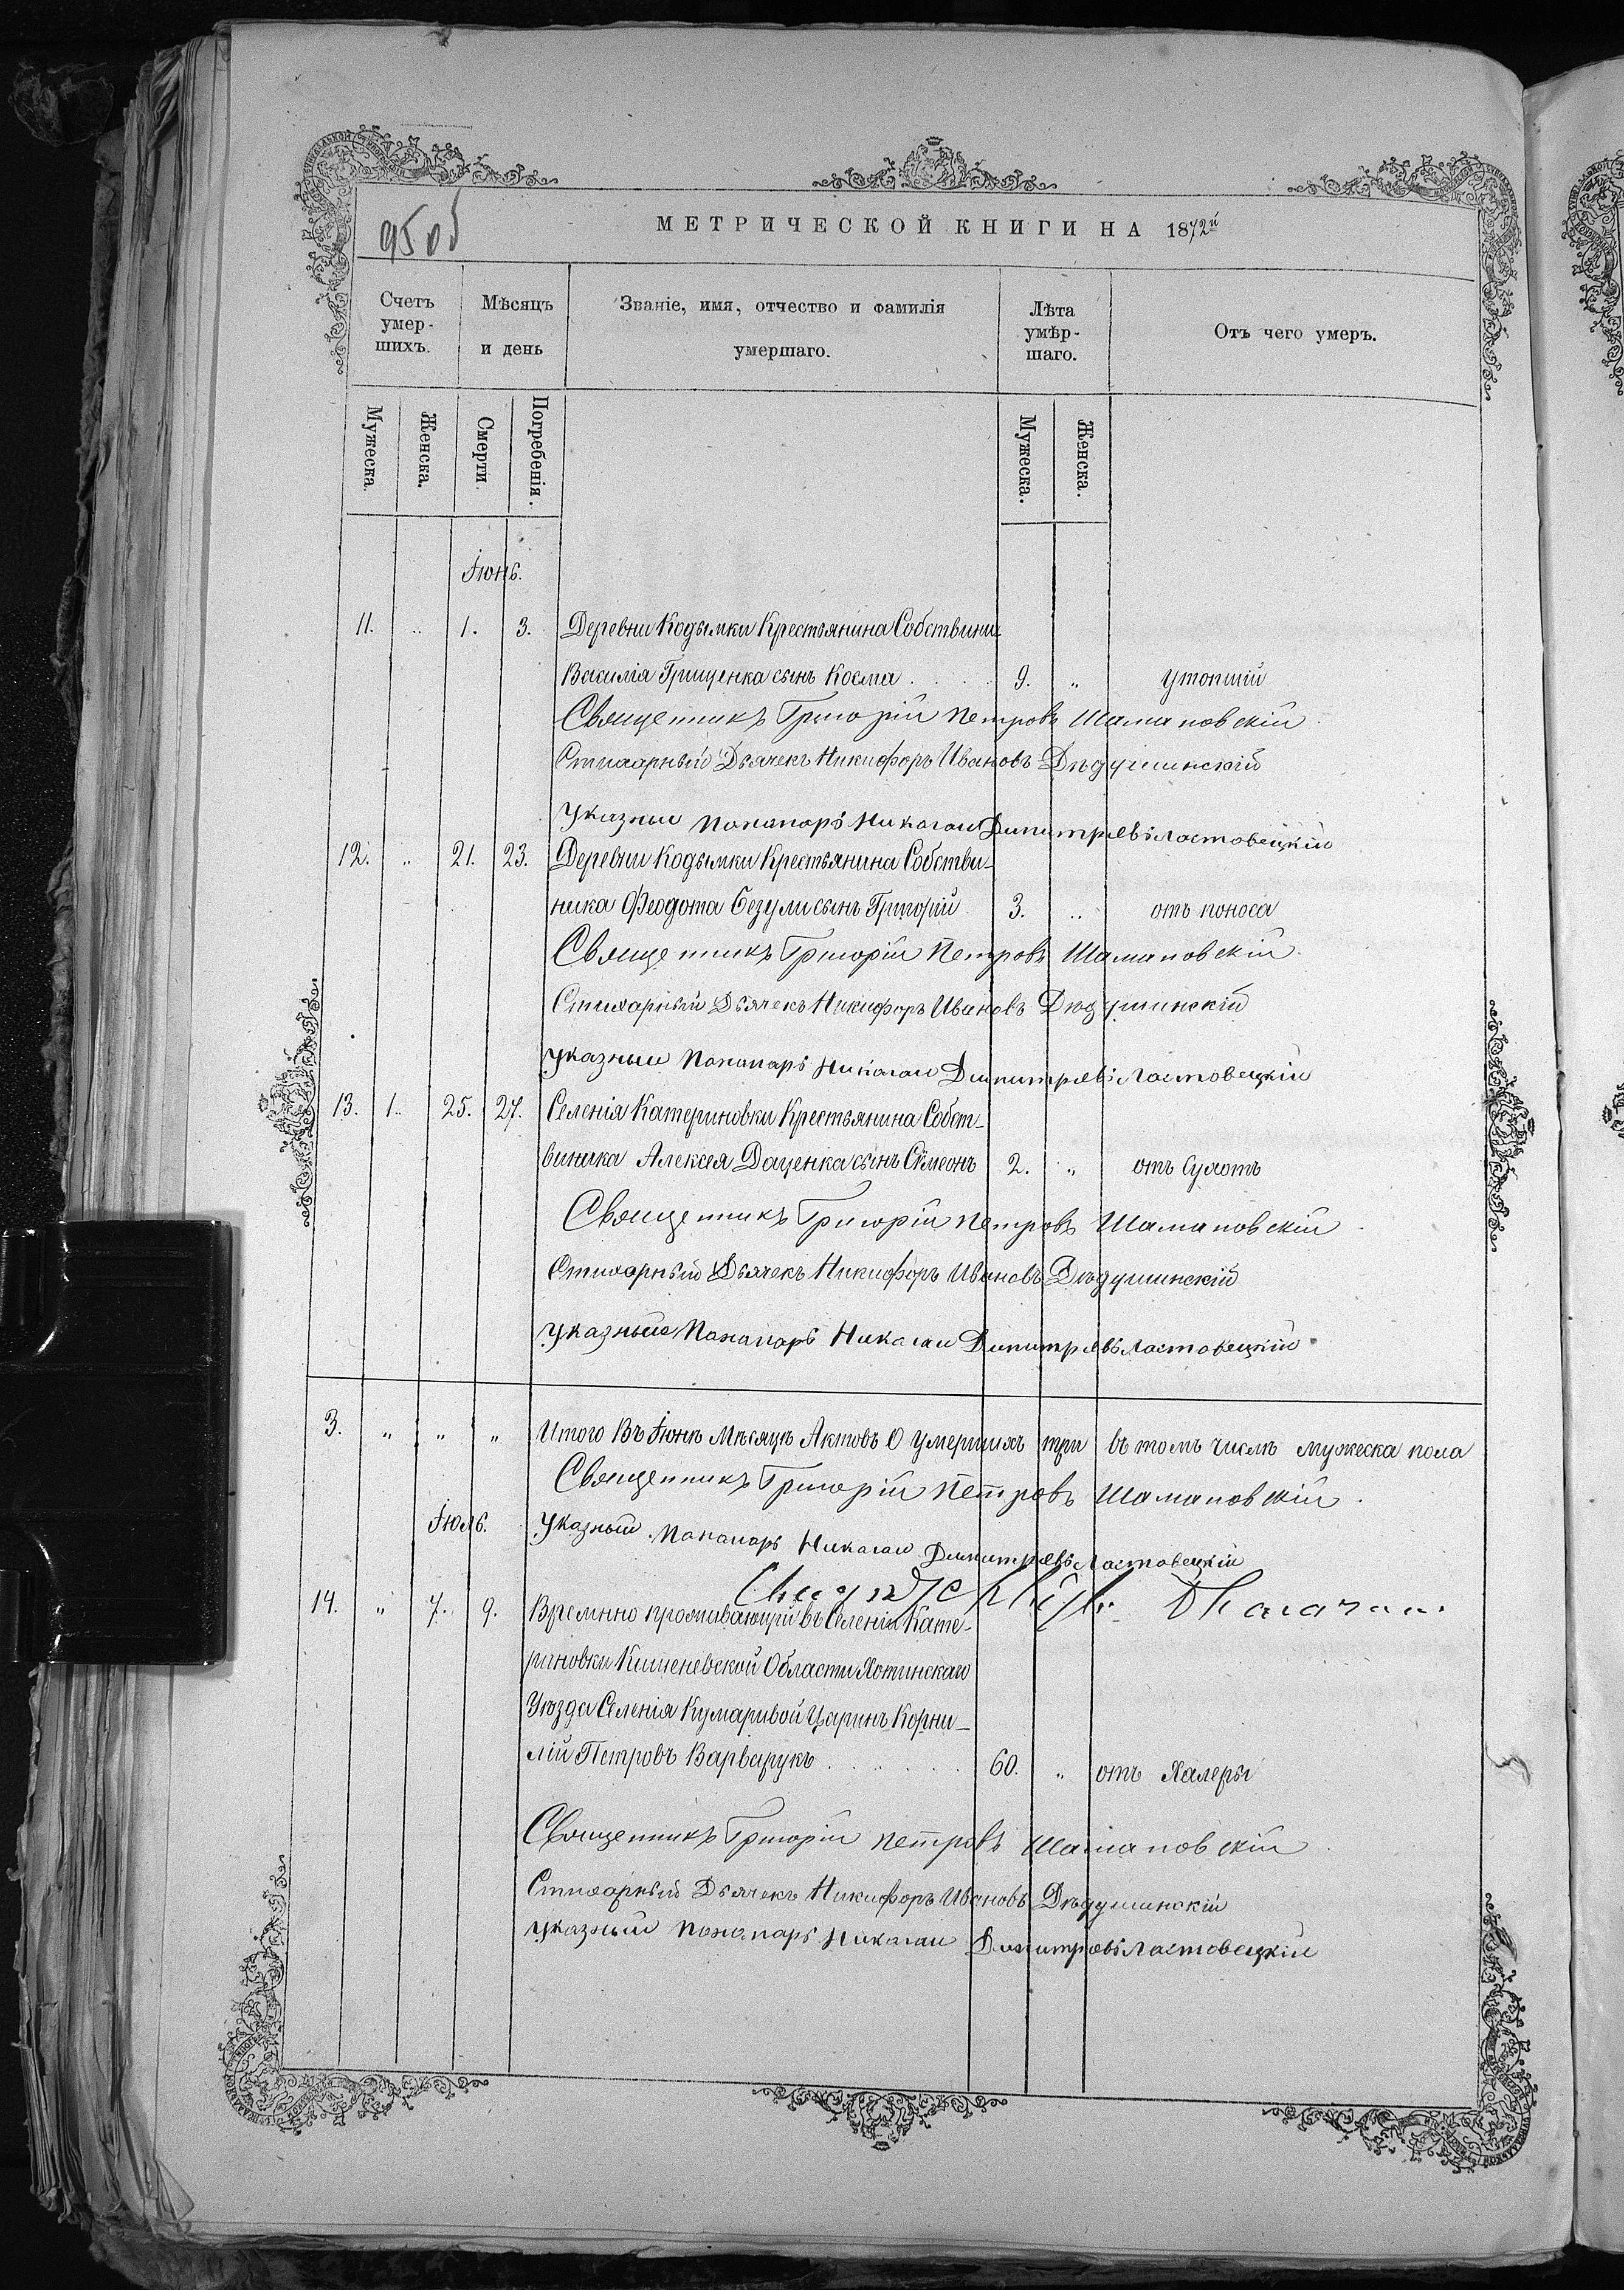 95об
МЕТРИЧЕСКОЙ КНИГИ НА 1872й
Счетъ умер-шихъ.
Мѣсяцъ и день
Званіе, имя, отчество и фамилія умершаго.
Лѣта умѣр-шаго.
Отъ чего умеръ.
Мужеска.
Женска.
Смерти.
Погребенія.
Мужеска.
Женска.
Іюнь.
11. „ 1. 3. Деревни Кодымки Крестьянина Собствини
Василія Грищенка сынъ Косма . . . . 9. „ утопшій
Священникъ Григорій Петровъ Шамановскій
Стихарный Дьячекъ Никифоръ Ивановъ Дѣдушинскій
Указный Понамарь Николай Димитріевъ Ластовецкій
12. „ 21. 23. Деревни Кодымки Крестьянина Собстви-
ника Феодота Безули сынъ Григорій 3. „ отъ поноса
Священникъ Григорій Петровъ Шамановскій
Стихарный Дьячекъ Никифоръ Ивановъ Дѣдушинскій
Указный Понамарь Николай Димитріевъ Ластовецкій
13. 1. 25. 27. Селенія Катериновки Крестьянина Собст-
виника Алексѣя Даценка сынъ Симеонъ 2. „ отъ Сухотъ
Священникъ Григорій Петровъ Шамановскій
Стихарный Дьячекъ Никифоръ Ивановъ Дѣдушинскій
Указный Понамарь Николай Димитріевъ Ластовецкій
3. „ „ „ Итого Въ Іюнѣ Мѣсяцѣ Актовъ О умершихъ три въ томъ числѣ мужеска пола
Священникъ Григорій Петровъ Шамановскій
Іюль. Указный Понамарь Николай Димитріевъ Ластовецкій
14. „ 7. 9. Времнно проживающій въ Селеніи Кате-
риновки Кишеневской Области Хотинскаго
Уѣзда Селенія Кумаривой Царинъ Корни-
лій Петровъ Варварукъ . . . . . . 60. „ отъ Халеры
Священникъ Григорій Петровъ Шамановскій
Стихарный Дьячекъ Никифоръ Ивановъ Дѣдушинскій
Указный Понамарь Николай Димитріевъ Ластовецкій